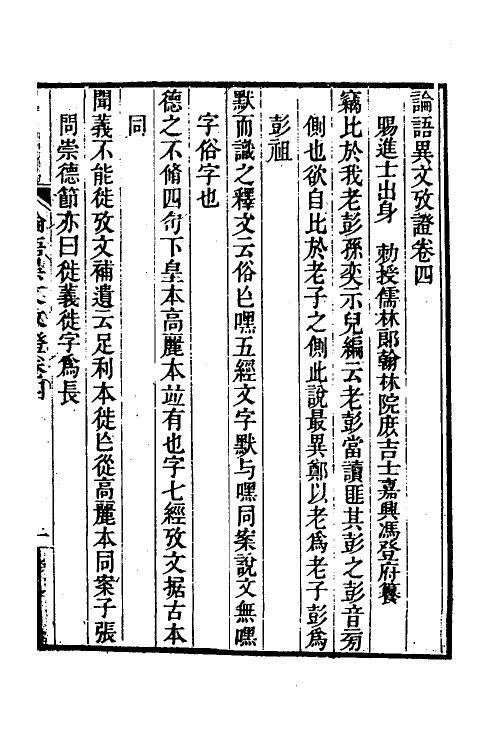 論語異文攷證卷四
賜進士出身　勅授儒林郎翰林院庶吉士嘉興馮登府纂
竊比於我老彭孫奕示兒編云老彭當讀匪其彭之彭音㫄
側也欲自比於老子之側此說最異鄭以老爲老子彭爲
彭祖
默而識之釋文云俗作嘿五經文字默与嘿同案說文無嘿
字俗字也
德之不脩四句下皇本高麗本竝有也字七經攷文据古本
同
聞義不能徙攷文補遺云足利本徙作從高麗本同案子張
問崇德節亦曰徙義徙字爲長
論語異文攷證卷四
一